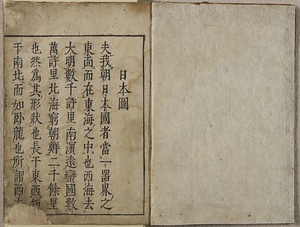 日本圖
夫我朝日本國者當一器界之
東南而在東海之中也西海去
大明數千許里南濱遠蠻國數
萬許里北海窮朝鮮二千餘里
也然爲其形狀也長于東西
于南北而如臥龍也所謂西